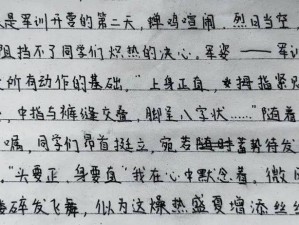 是军训开营的第二天，蝉鸣喧闹，烈日当空
阻挡不了同学们炽热的决心，军姿——军训
所有动作的基础，"上身正直，拇指紧
，中指与裤缝交叠，脚呈八字状……"随着
嘱，同学们昂首挺立，宛若随时蓄势待发
。"头要正，身要直"我在心中默念着，微风
碎发飞舞，似为这燥热盛夏增添丝丝